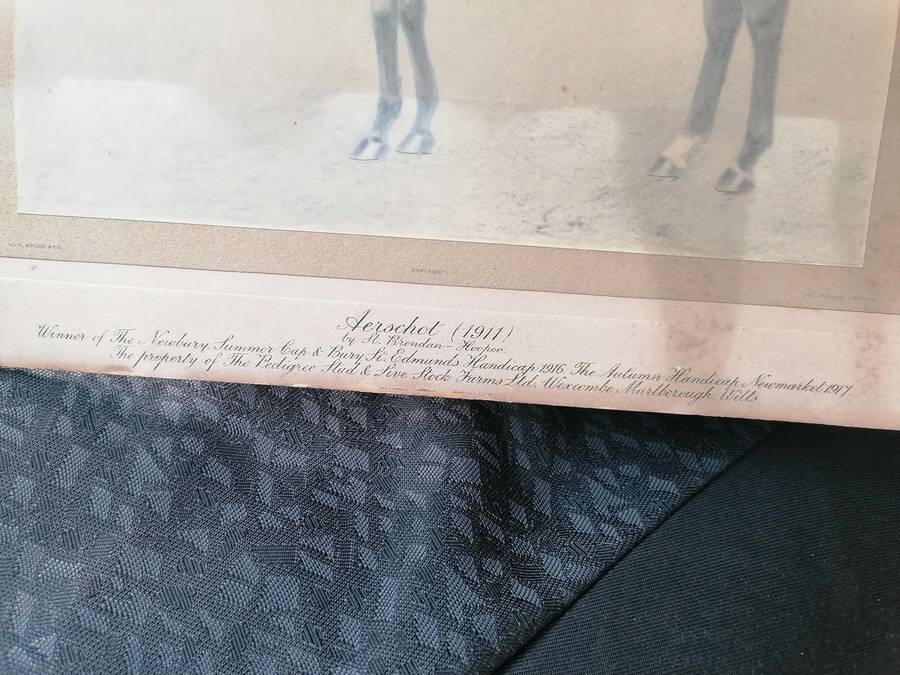 W. W. ROUCH & CO.
COPYRIGHT.
Aerschot (1911)
by St. Brendan - Hoopoo.
Winner of The Newbury Summer Cup & Bury St. Edmunds Handicap 1916, The Autumn Handicap Newmarket 1917.
The property of The Pedigree Stud & Live Stock Farms Ltd. Wexcombe, Marlborough, Wilts.